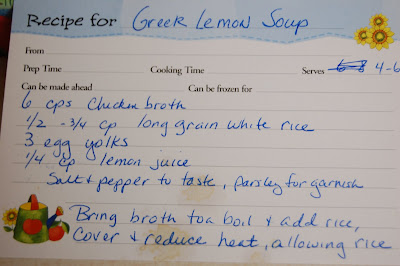 Recipe for Greek Lemon Soup
From
Prep Time Cooking Time Serves 6-8 4-6
Can be made ahead Can be frozen for
6 cps Chicken broth
1/2 - 3/4 cp long grain white rice
3 egg yolks
1/4 cp lemon juice
Salt & pepper to taste, parsley for garnish
Bring broth to a boil & add rice,
Cover & reduce heat, allowing rice